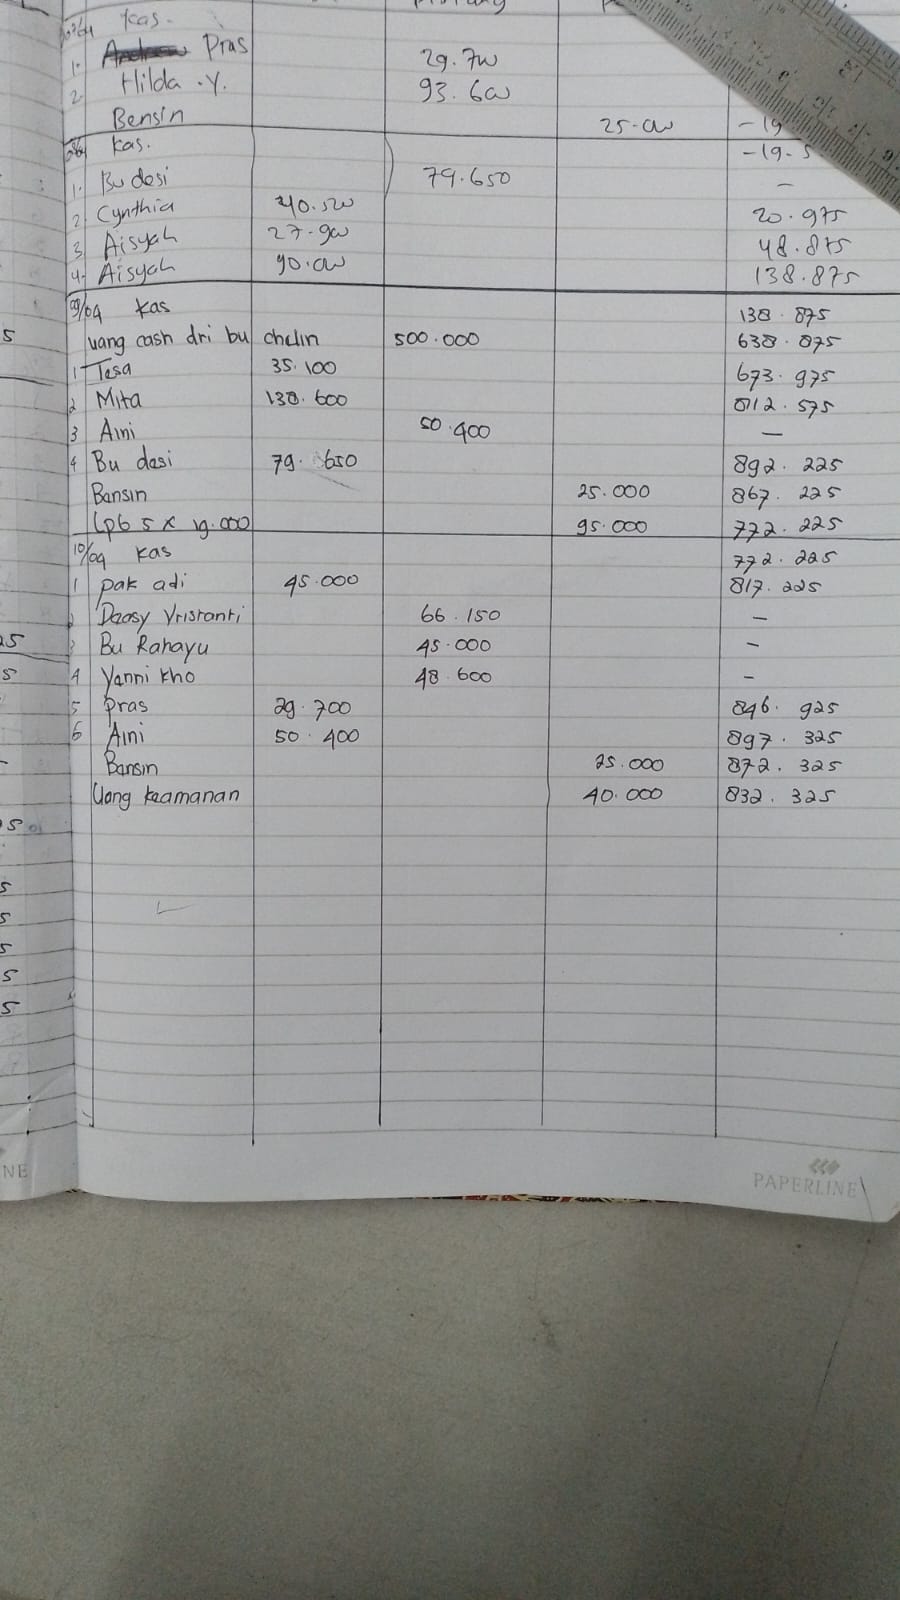 Kas.
1. Pras 29.700
2. Hilda .Y. 93.600
Bensin 25.000 -19
Kas. -19.5
1. Bu desi 79.650 -
2. Cynthia 40.500 20.975
3. Aisyah 27.900 48.875
4. Aisyah 90.000 138.875
09/09 Kas 138.875
uang cash dri bu chelin 500.000 638.875
1 Tesa 35.100 673.975
2 Mita 138.600 812.575
3 Aini 50.400 -
4 Bu desi 79.650 892.225
Bensin 25.000 867.225
LPG 5 x 19.000 95.000 772.225
10/09 Kas 772.225
1 pak adi 45.000 817.225
2 Deasy Yristanti 66.150 -
3 Bu Rahayu 45.000 -
4 Yanni Kho 48.600 -
5 Pras 29.700 846.925
6 Aini 50.400 897.325
Bensin 25.000 872.325
Uang keamanan 40.000 832.325
PAPERLINE